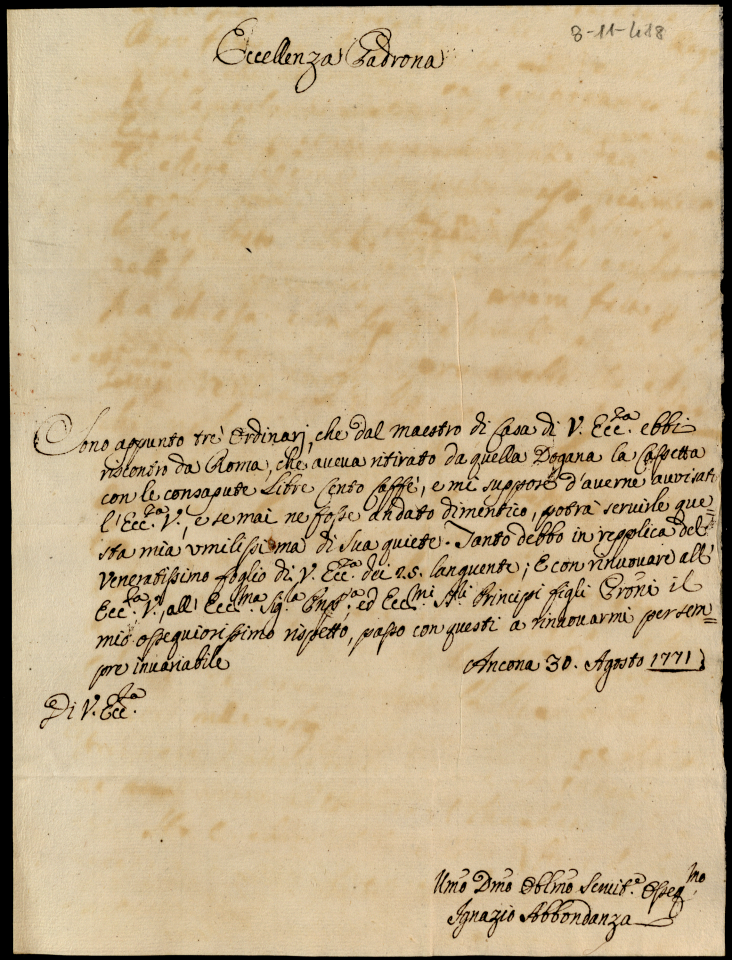 8-11-418
Eccellenza Padrona
Sono appunto tre Ordinarj, che dal maestro di Casa di V. Ecc.za ebbi
riscontro da Roma, che aveva ritirato da quella Dogana la Cassetta
con le consapute Libre Cento Caffè, e mi supposi d'averne avvisati
l'Ecc.za V., e se mai ne fosse andato dimentico, potrà servirle que=
sta mia umilissima di Sua quiete. Tanto debbo in repplica del
veneratissimo foglio di V. Ecc.za dei 25. languente; E con rinuovare all'
Ecc.za V., all' Ecc.ma Sig.a Pnp.a, ed Ecc.mi Principi figli Proñi il
mio ossequiosissimo rispetto, passo con questi a rinuovarmi per sem=
pre invariabile
Ancona 30. Agosto 1771
Di V. Ecc.za
Umo Dmo Oblmo Servit.e Osseq.mo
Ignazio Abbondanza